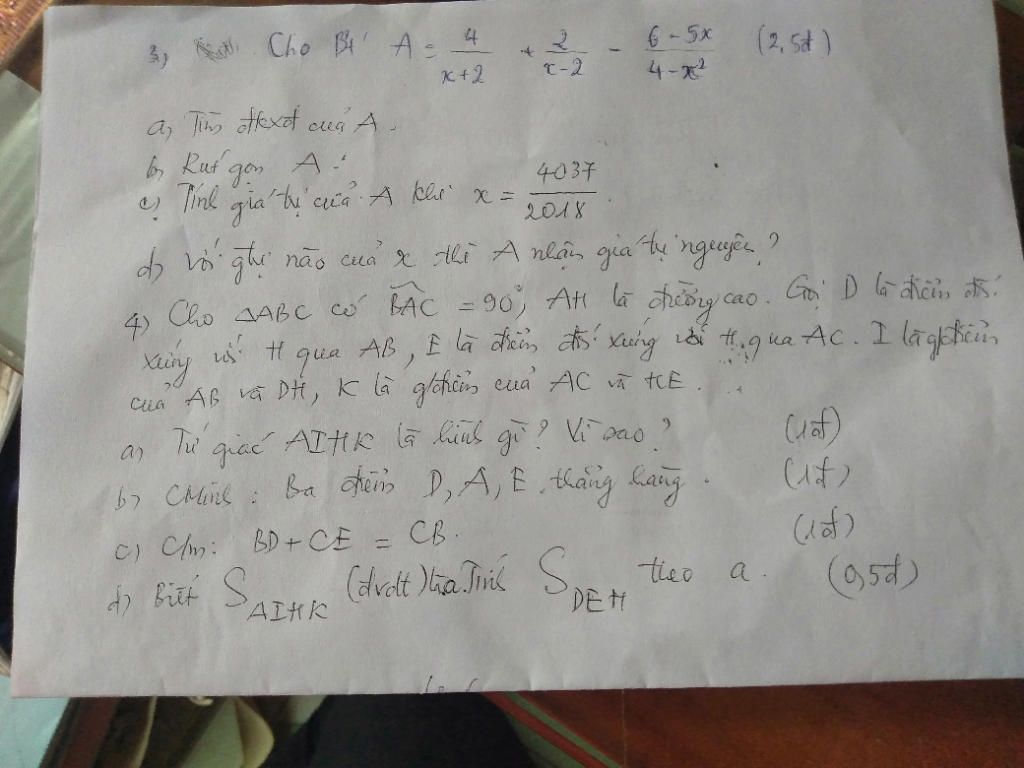 3, Cho Bt A = 4/(x+2) + 2/(x-2) - (6-5x)/(4-x²) (2,5đ)
a, Tìm đkxđ của A.
b, Rút gọn A.
c, Tính giá trị của A khi x = 4037/2018.
d, Với gtrị nào của x thì A nhận giá trị nguyên?
4) Cho △ABC có BAC = 90°, AH là đường cao. Gọi D là điểm đối
xứng với H qua AB, E là điểm đối xứng với H qua AC. I là g/điểm
của AB và DH, K là g/điểm của AC và HE.
a) Tứ giác AIHK là hình gì? Vì sao? (1đ)
b) CMinh: Ba điểm D, A, E thẳng hàng. (1đ)
c) C/m: BD + CE = CB. (1đ)
d) Biết S AIHK (đvdt) là a. Tính S DEH theo a. (0,5đ)